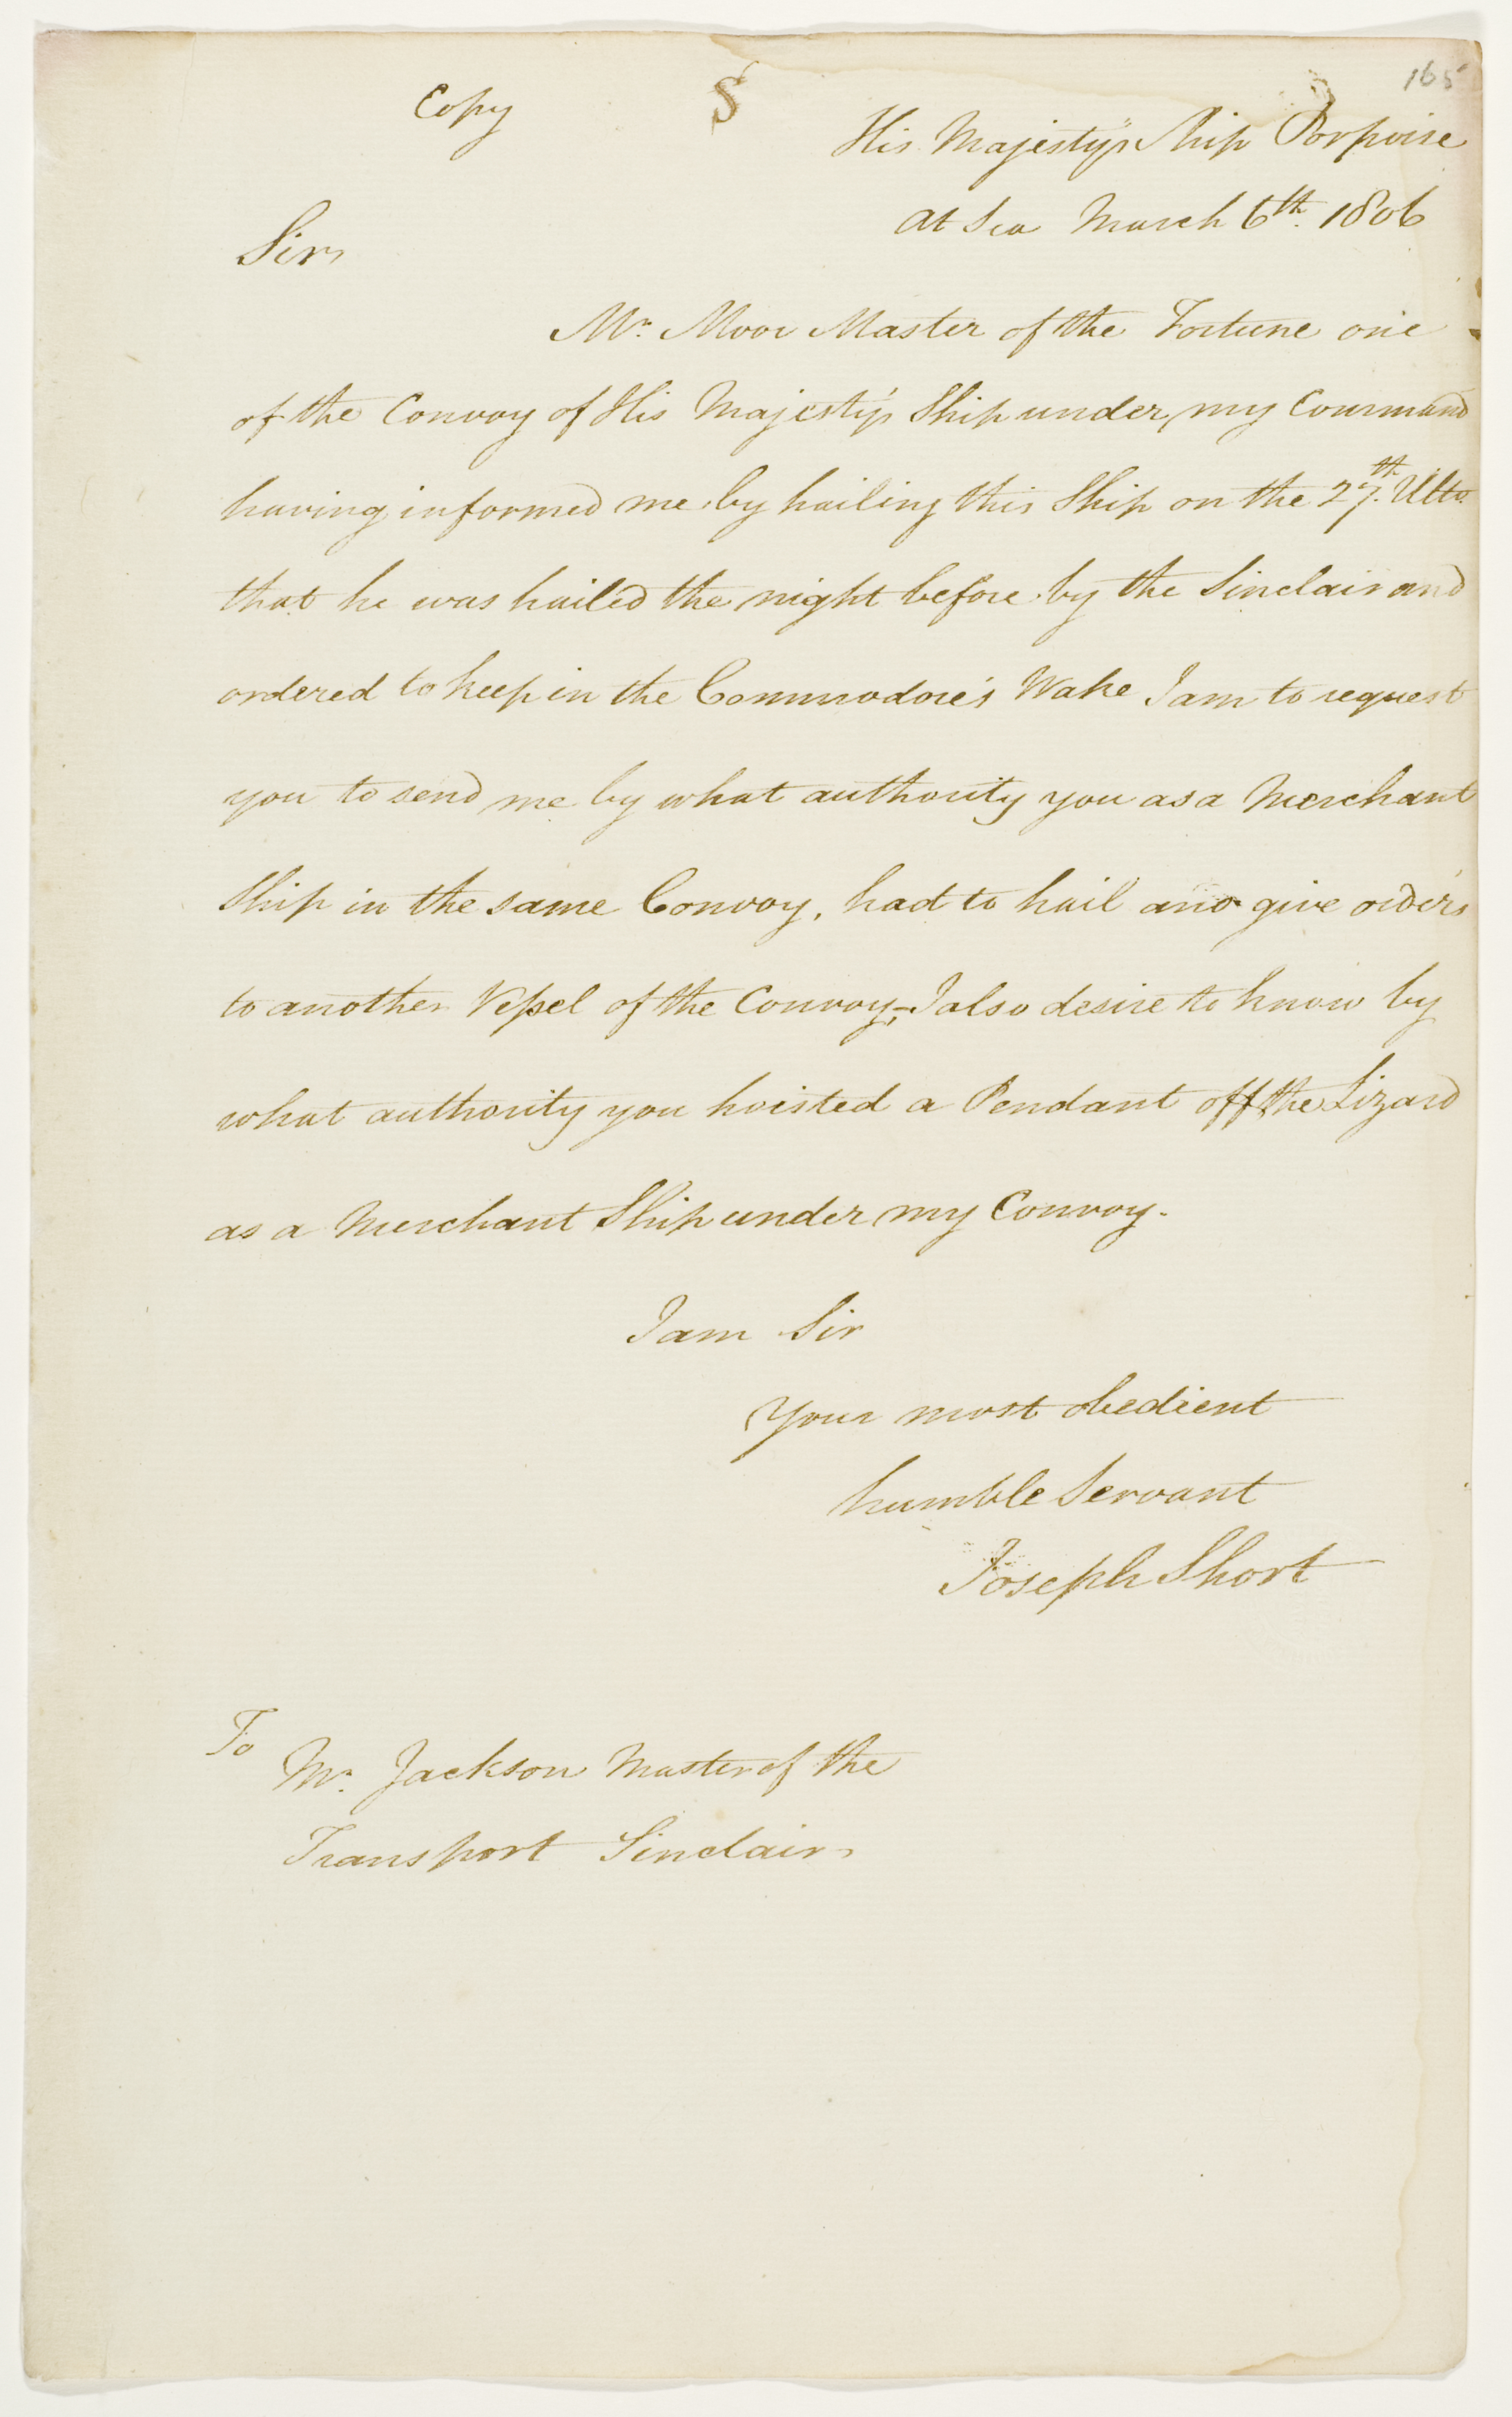 165
Copy S
His Majesty's Ship Porpoise
At Sea March 6th. 1806
Sir,
Mr. Moor Master of the Fortune one
of the Convoy of His Majesty's Ship under my Command
having informed me by hailing this Ship on the 27th. Ulto.
that he was hailed the night before by the Sinclair and
ordered to keep in the Commodore's Wake I am to request
you to send me by what authority you as a Merchant
Ship in the same Convoy, had to hail and give orders
to another Vessel of the Convoy;- I also desire to know by
what authority you hoisted a Pendant off the Lizard
as a Merchant Ship under my Convoy-
I am Sir
Your most obedient
humble Servant
Joseph Short
To
Mr. Jackson Master of the
Transport Sinclair